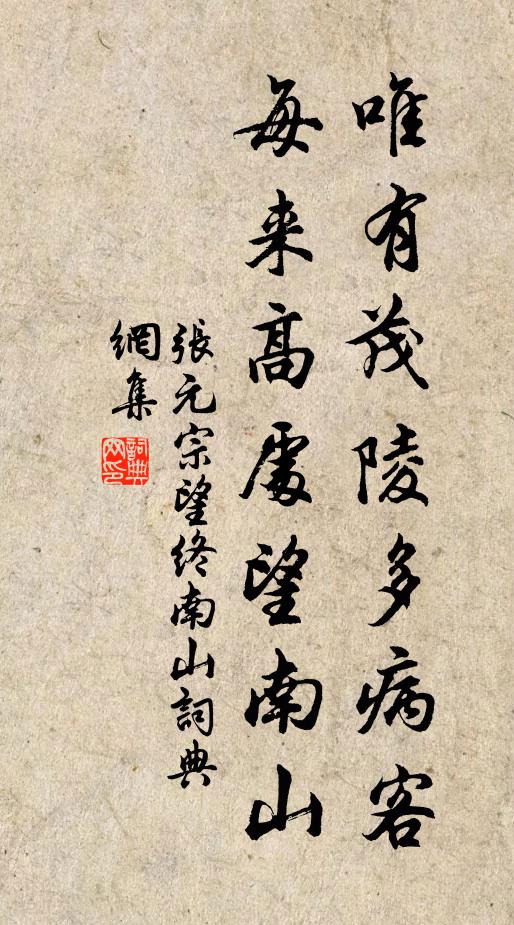 唯有茂陵多病客
每来高處望南山
張元宗望終南山詞典
網集
詞典网印